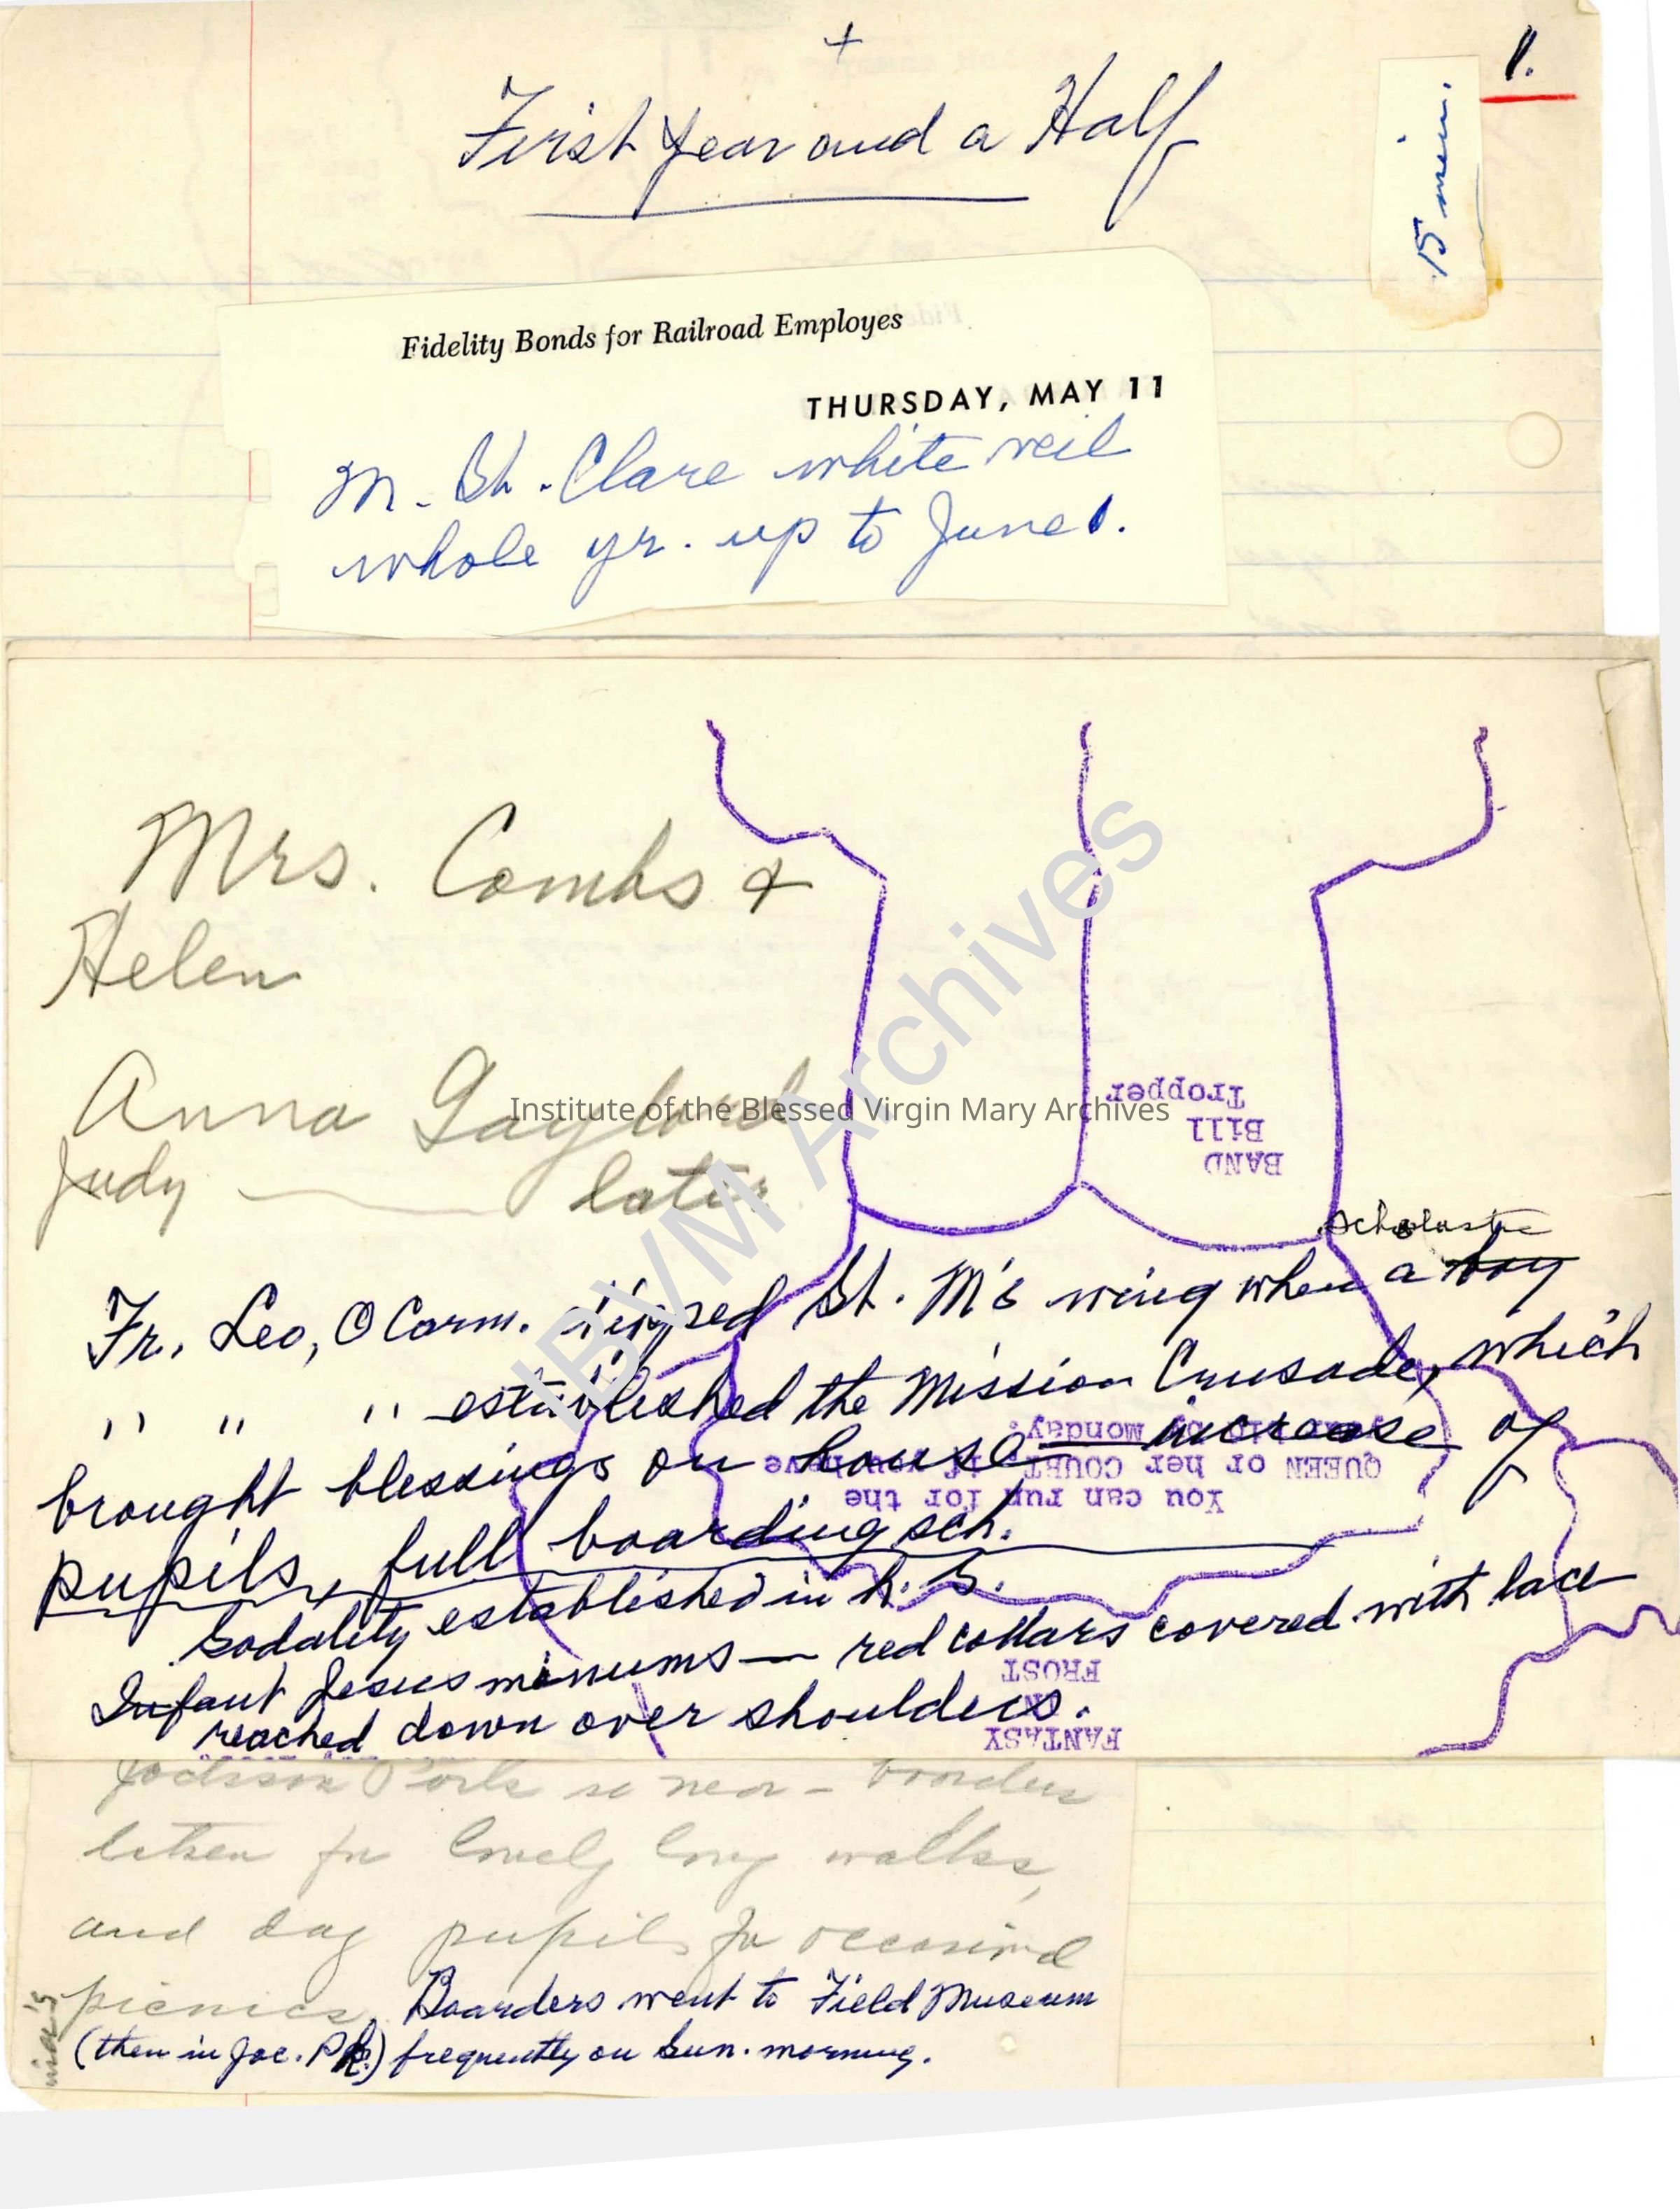 +
1.
First Year and a Half
15 min.
Fidelity Bonds for Railroad Employes
THURSDAY, MAY 11
M. St. Clare white veil
whole yr. up to June 1.
Mrs. Combs +
Helen
Anna Gaylord
Judy — later
Institute of the Blessed Virgin Mary Archives
IBVM Archives
BAND
Bill
Tropper
Scholastic
Fr. Leo, O Carm. tipped St. M's wing when a boy
" " " established the Mission Crusade, which
brought blessings on house — increase of
pupils, full boarding sch.
You can run for the
QUEEN or her COURT if you have
Monday.
Sodality established in h. S.
Infant Jesus minums — red collars covered with lace
reached down over shoulders.
FROST
FANTASY
Jackson Park so near — boarders
taken for lovely long walks,
and day pupils for occasional
picnics. Boarders went to Field Museum
(then in Jac. Pk.) frequently on Sun. morning.